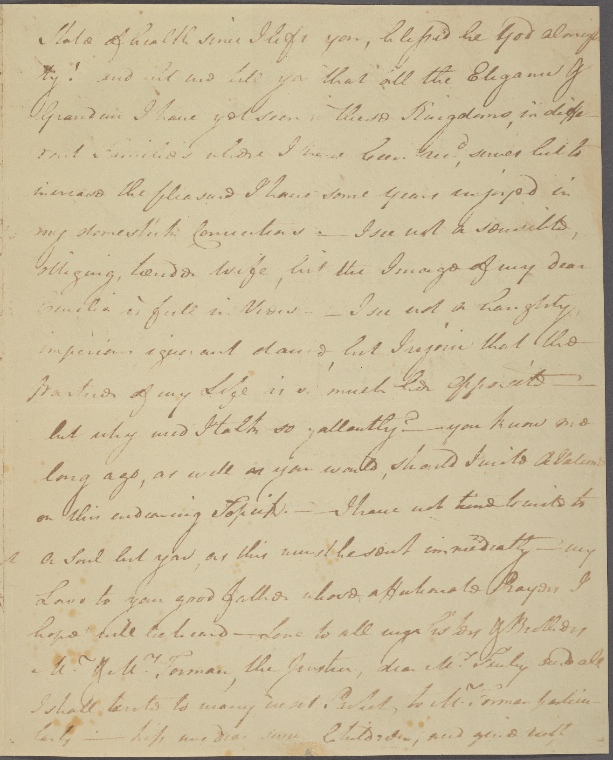 State of health since I left you, blessed be God almigh
ty! and let me tell you that all the Elegance &
Grandeur I have yet seen in these Kingdoms, in diffe-
rent Families where I have been rec'd, serves but to
increase the pleasure I have some years enjoyed in
my domestick Connections — I see not a sensible,
obliging, tender Wife, but the Image of my dear
is full in View — I see not a haughty,
imperious ignorant dame, but I rejoice that the
Partner of my Life is so much her opposite —
but why need I talk so gallantly? — you know me
long ago, as well as you would, should I write a Volume
on this endearing Topick. — I have not time to write to
a Soul but you, as this must be sent immediatly — my
Love to your good father whose affectionate Prayers I
hope will be heard — Love to all my Sisters & Brothers
Mr. & Mrs. Forman, the Justice, dear Mrs. and all
I shall write to many next Packet, to Mr. Forman particu
larly — kiss our dear Children, and give